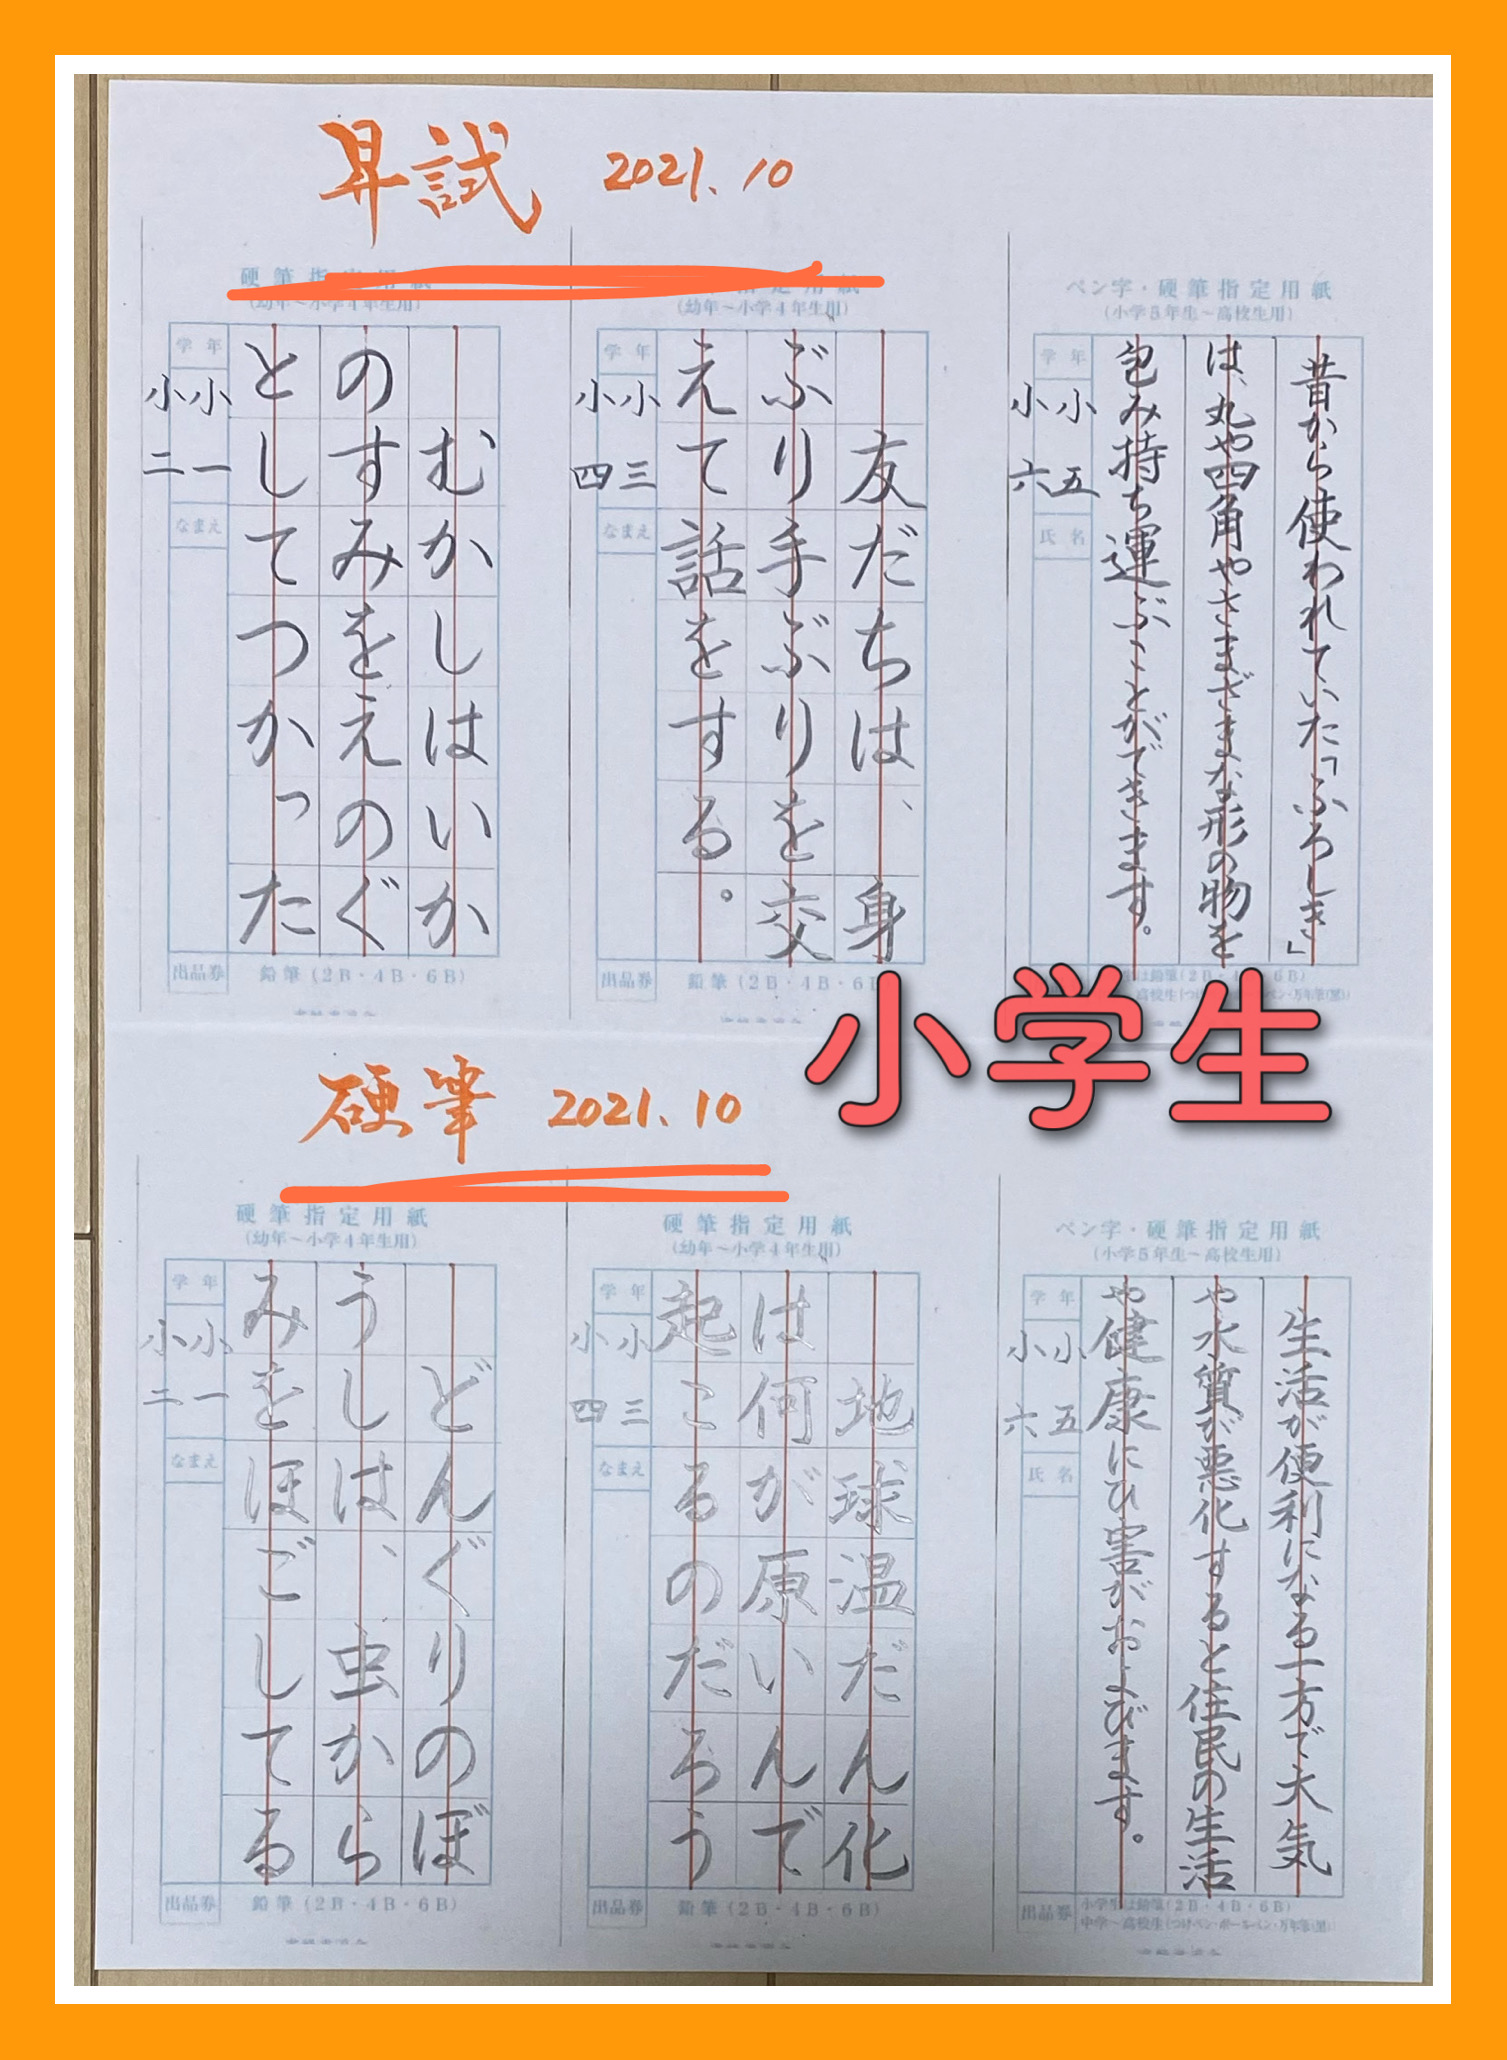 昇試 2021.10
硬筆指定用紙
(幼年〜小学4年生用)
学年
小一
小二
なまえ
むかしはいか
のすみをえのぐ
としてつかった
出品券
鉛筆(2B・4B・6B)
指定用紙
(幼年〜小学4年生用)
学年
小三
小四
なまえ
友だちは、身
ぶり手ぶりを交
えて話をする。
出品券
鉛筆(2B・4B・6B
ペン字・硬筆指定用紙
(小学5年生〜高校生用)
学年
小五
小六
氏名
昔から使われていた「ふろしき」
は、丸や四角やさまざまな形の物を
包み持ち運ぶことができます。
小学生
硬筆 2021.10
硬筆指定用紙
(幼年〜小学4年生用)
学年
小一
小二
なまえ
どんぐりのぼ
うしは、虫から
みをほごしてる
出品券
鉛筆(2B・4B・6B)
硬筆指定用紙
(幼年〜小学4年生用)
学年
小三
小四
なまえ
地球温だん化
は何が原いんで
起こるのだろう
出品券
鉛筆(2B・4B・6B)
ペン字・硬筆指定用紙
(小学5年生〜高校生用)
学年
小五
小六
氏名
生活が便利になる一方で大気
や水質が悪化すると住民の生活
や健康にひ害がおよびます。
出品券
小学生は鉛筆(2B・4B・6B)
中学〜高校生(つけペン・ボールペン・万年筆(黒))